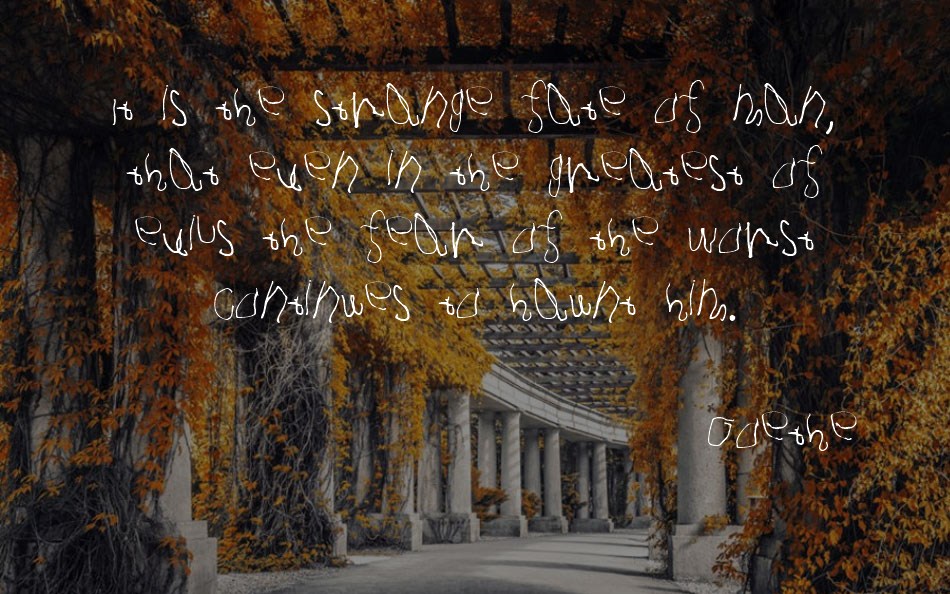 it is the strange fate of man,
that even in the greatest of
evils the fear of the worst
continues to haunt him.
Goethe